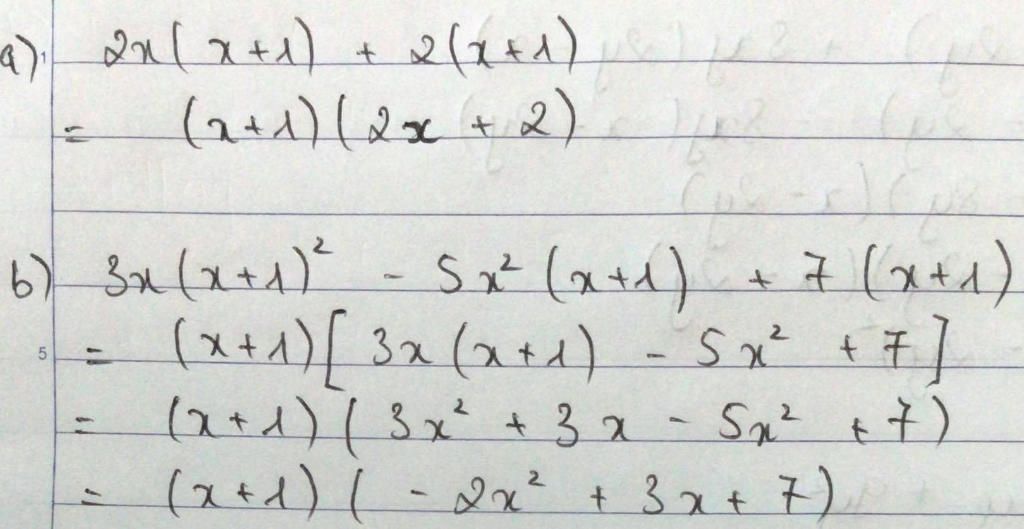 a) 2x(x+1) + 2(x+1)
= (x+1)(2x + 2)
b) 3x(x+1)² - 5x² (x+1) + 7 (x+1)
= (x+1)[3x(x+1) - 5x² + 7]
= (x+1)(3x² + 3x - 5x² + 7)
= (x+1)(-2x² + 3x + 7)